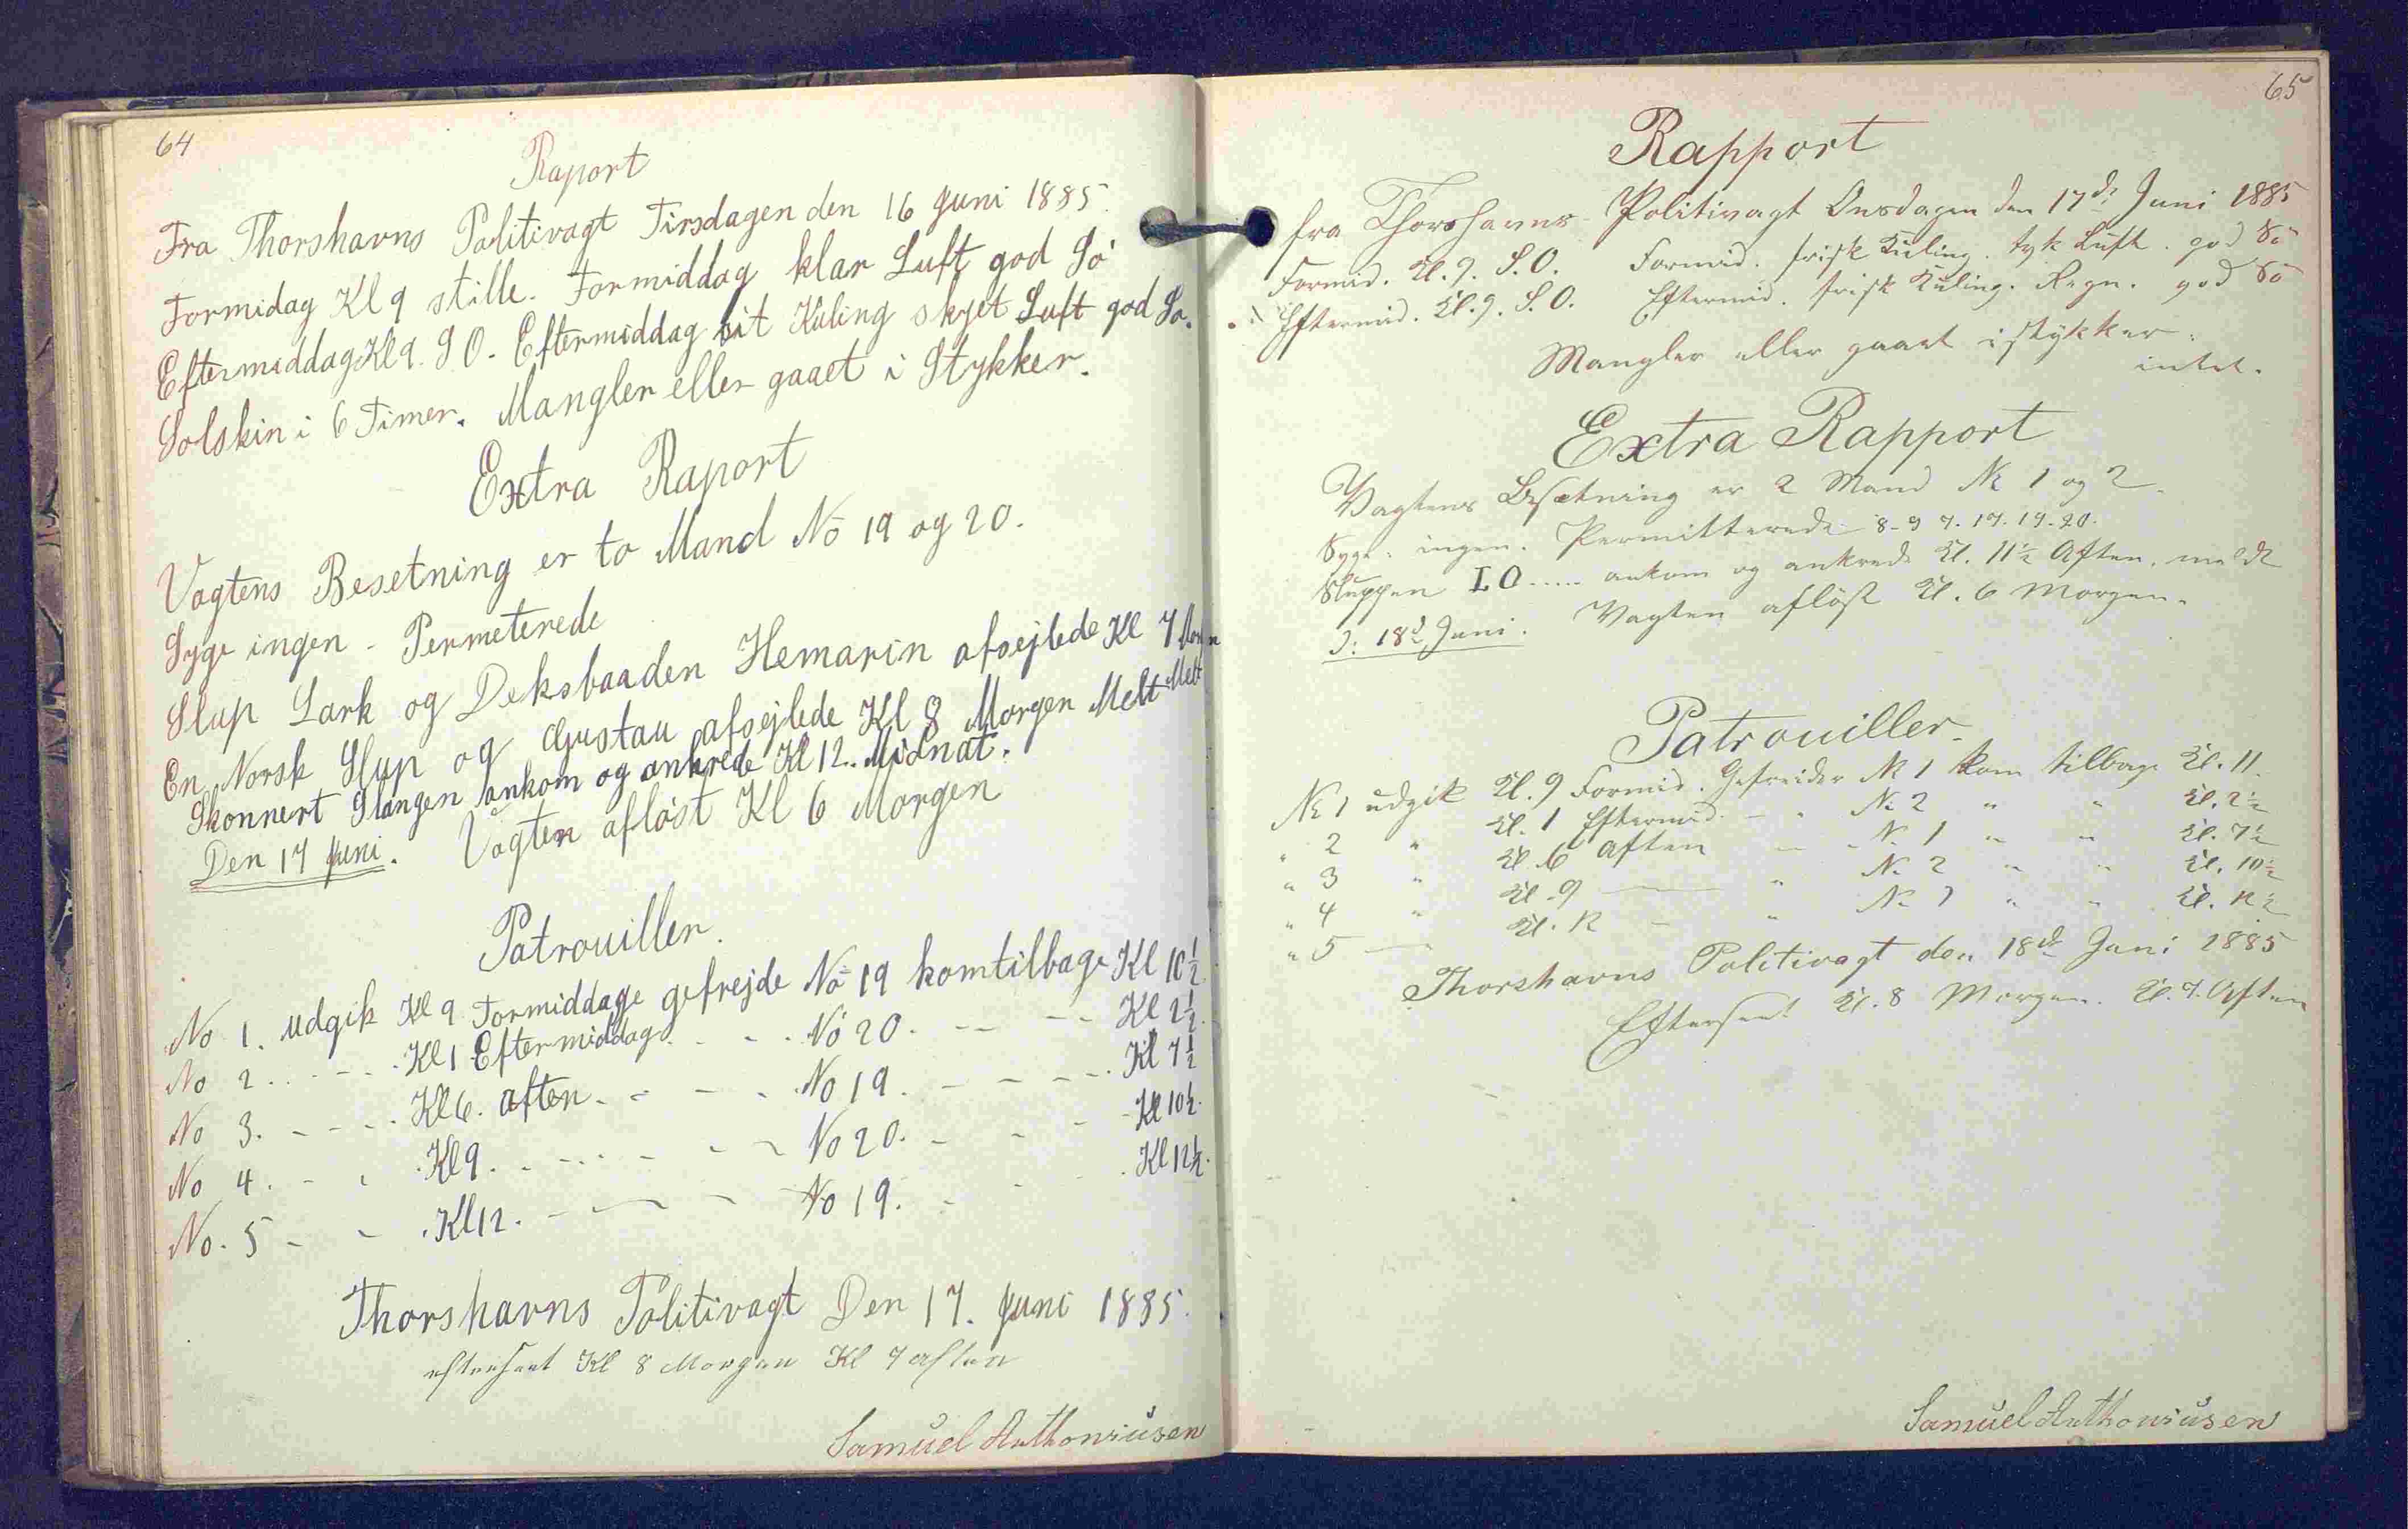 64
Raport
Fra Thorshavns Politivagt Tirsdagen den 16 Juni 1885.
Formidag Kl 9 stille. Formiddag klar Luft god Sö
Eftermiddag Kl 9. S O. Eftermiddag lit Kuling skyet Luft god Sö.
Solskin i 6 Timer. Mangler eller gaaet i Stykker.
Extra Raport
Vagtens Besetning er to Mand No 19 og 20.
Syge ingen - Permeterede
Slup Lark og Deksbaaden Hemarin afsejlede Kl 7 Morn
En Norsk Slup og Gustau afsejlede Kl 8 Morgen Melt Melt
Skonnert Slangen ankom og ankrede Kl 12. Midnat.
Den 17 Juni. Vagten afløst Kl 6 Morgen
Patrouiller.
No 1. udgik Kl 9 Formiddage gefrejde No 19 kom tilbage Kl 10½
No 2. - - - Kl 1 Eftermiddag. - - No 20. - - - - Kl 2½
No 3. - - - Kl 6. aften. - - - No 19. - - - - Kl 7½
No 4. - - Kl 9. - - - - - No 20. - - - Kl 10½.
No. 5 - - Kl 12. - - - No 19. - - - Kl 12½.
Thorshavns Politivagt Den 17. Juni 1885.
efterseet Kl 8 Morgen Kl 7 aften
Samuel Anthoniusen
65
Rapport
fra Thorshavns Politivagt Onsdagen den 17d. Juni 1885
Formid. Kl. 9. S.O. Formid. frisk Kuling. tyk Luft. god Sö
Eftermid. Kl. 9. S.O. Eftermid. frisk Kuling. Regn. god Sö
Mangler eller gaaet istykker:
intet.
Extra Rapport
Vagtens Besætning er 2 Mand No 1 og 2.
Syge: ingen. Permitterede 8-9 7. 17. 19. 20.
Sluppen I O ..... ankom og ankrede Kl. 11½ Aften, meldt
D: 18d Juni. Vagten aflöst Kl. 6 Morgen.
Patrouiller
No 1 udgik Kl. 9 Formid. Gefreider No 1 kom tilbage Kl. 11.
" 2 " Kl. 1 Eftermid. - " No 2 " " Kl. 2½
" 3 " Kl. 6 Aften - " No 1 " " Kl. 7½
" 4 " Kl. 9 - " No 2 " " Kl. 10½
" 5 - Kl. 12 - " No 1 " " Kl. 12½
Thorshavns Politivagt den 18d Juni 1885
Efterseet Kl. 8 Morgen. Kl. 7. Aften
Samuel Anthoniusen